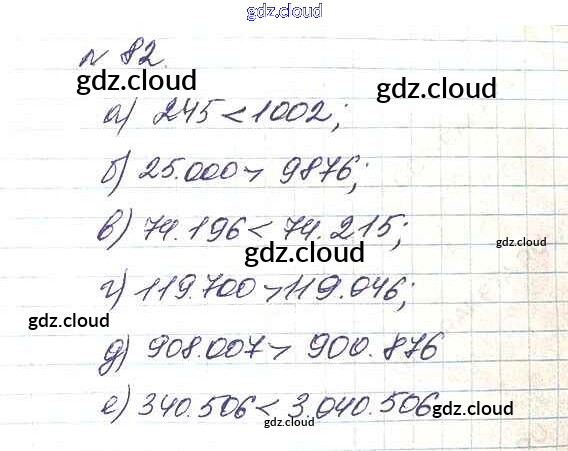 gdz.cloud
№ 82.
gdz.cloud
gdz.cloud
а) 245 < 1002;
б) 25.000 > 9876;
в) 74.196 < 74.215;
gdz.cloud
gdz.cloud
г) 119.700 > 119.046;
gdz.cloud
д) 908.007 > 900.876
е) 340.506 < 3.040.506
gdz.cloud